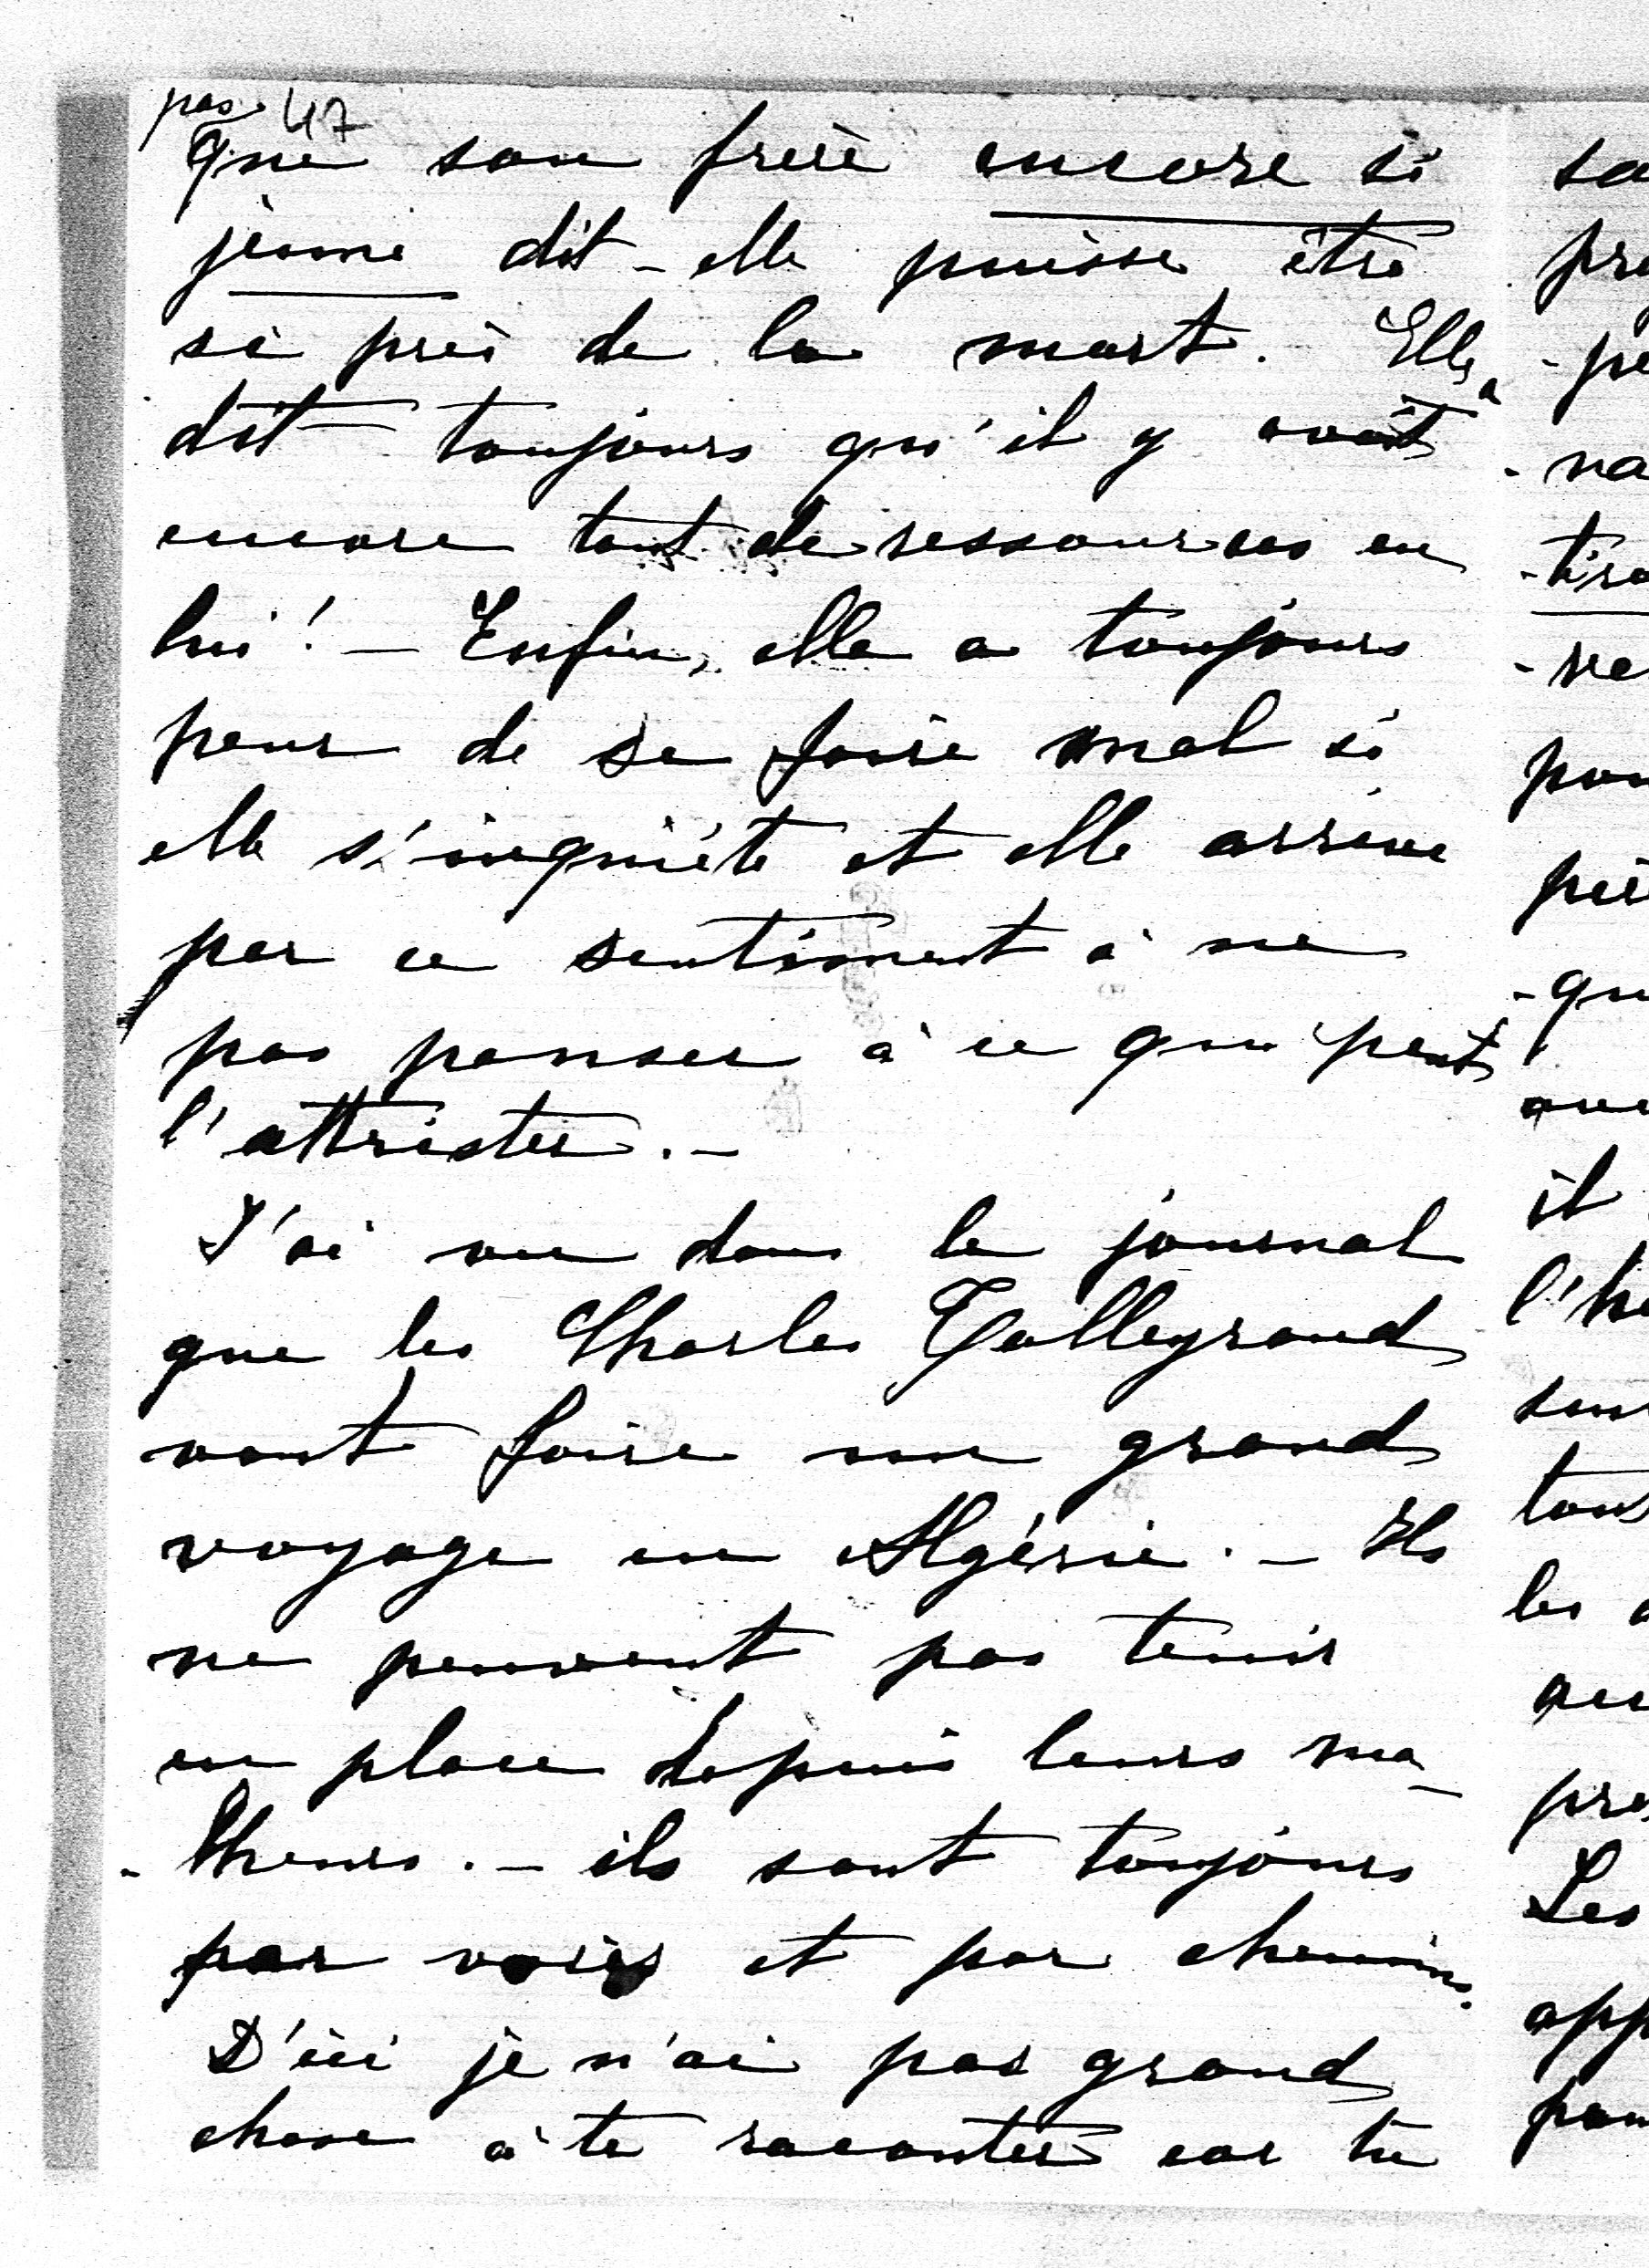 pas. 47
que son frère encore si
jeune dit-elle puisse être
si près de la mort. Elle
dit toujours qu'il y avait
encore tant de ressources en
lui! - Enfin, elle a toujours
peur de se faire mal si
elle s'inquiéte et elle arrive
par ce sentiment à ne
pas penser à ce qui peut
l'attrister. -
J'ai vu dans le journal
que les Charles Talleyrand
vont faire un grand
voyage en Algérie. - Ils
ne peuvent pas tenir
en place depuis leurs ma-
-lheurs. - ils sont toujours
par voies et par chemins.
D'ici je n'ai pas grand
chose à te raconter car tu
sa
pre
-pe
-na
-tira
-ve
pou
-qu
il
l'he
tous
les
pre
Les
app